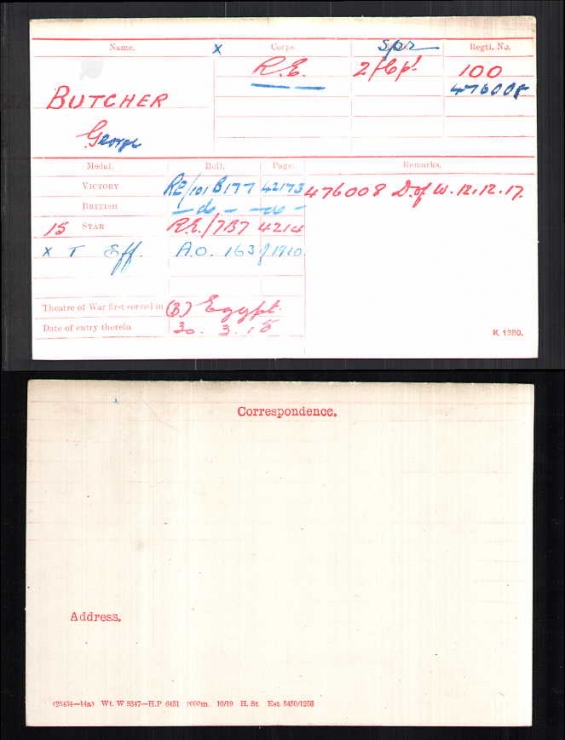 Name. X Corps. Spr Regtl. No.
R.E. 2/Cpl. 100
BUTCHER 476008
George
Medal. Roll. Page. Remarks.
VICTORY RE/101 B177 42173 476008 D. of W. 12.12.17.
BRITISH — do — — do —
15 STAR R.E./7B7 4214
X T Eff. A.O. 163 / 1910.
Theatre of War first served in (3) Egypt.
Date of entry therein 30. 3. 15
K 1380.
Correspondence.
Address.
Wt. W 5347—H.P 6431 10/19 H. St.